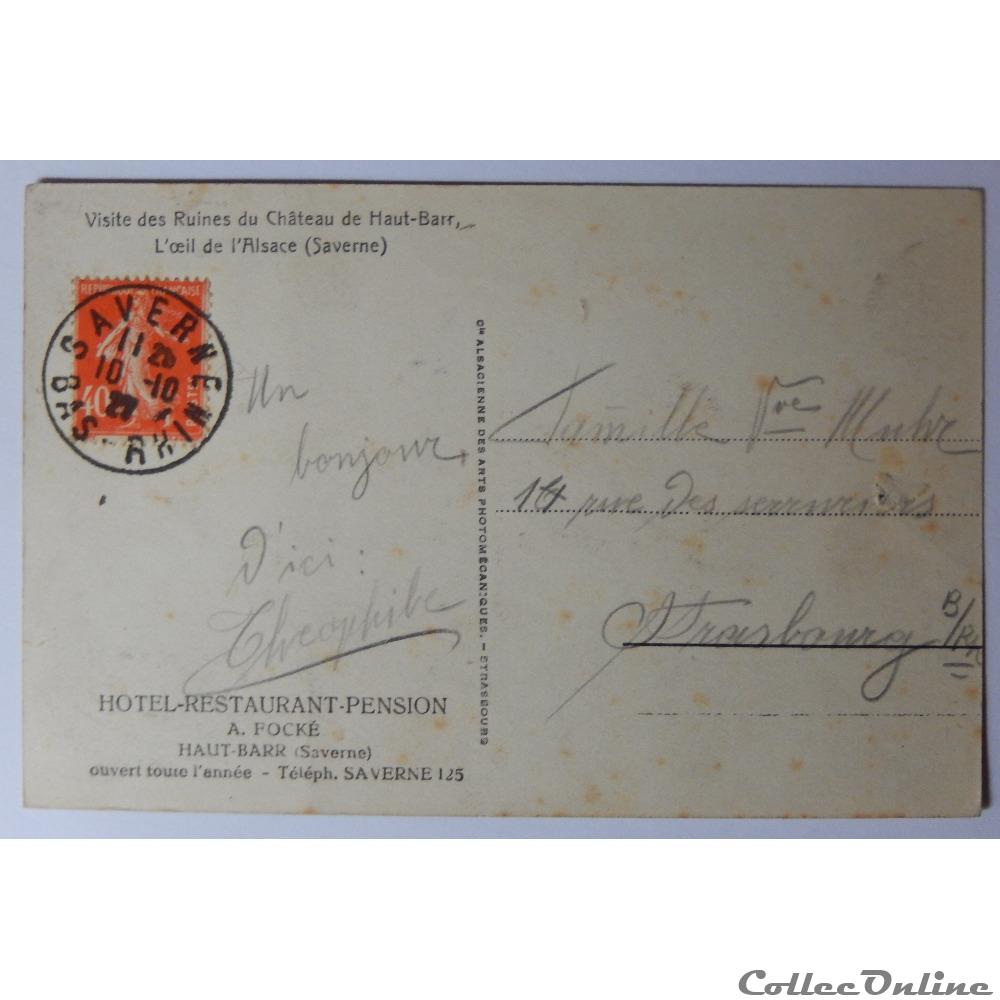 Visite des Ruines du Château de Haut-Barr,
L'œil de l'Alsace (Saverne)
REPUBLIQUE FRANÇAISE
40
POSTES
SAVERNE
BAS-RHIN
11 25
10-10
27
Un
bonjour
d'ici :
Théophile
HOTEL-RESTAURANT-PENSION
A. FOCKÉ
HAUT-BARR (Saverne)
ouvert toute l'année - Téléph. SAVERNE 125
Cie ALSACIENNE DES ARTS PHOTOMÉCANIQUES. - STRASBOURG
Famille Vve Muhr
14 rue des serruriers
Strasbourg
B/Rh
CollecOnline